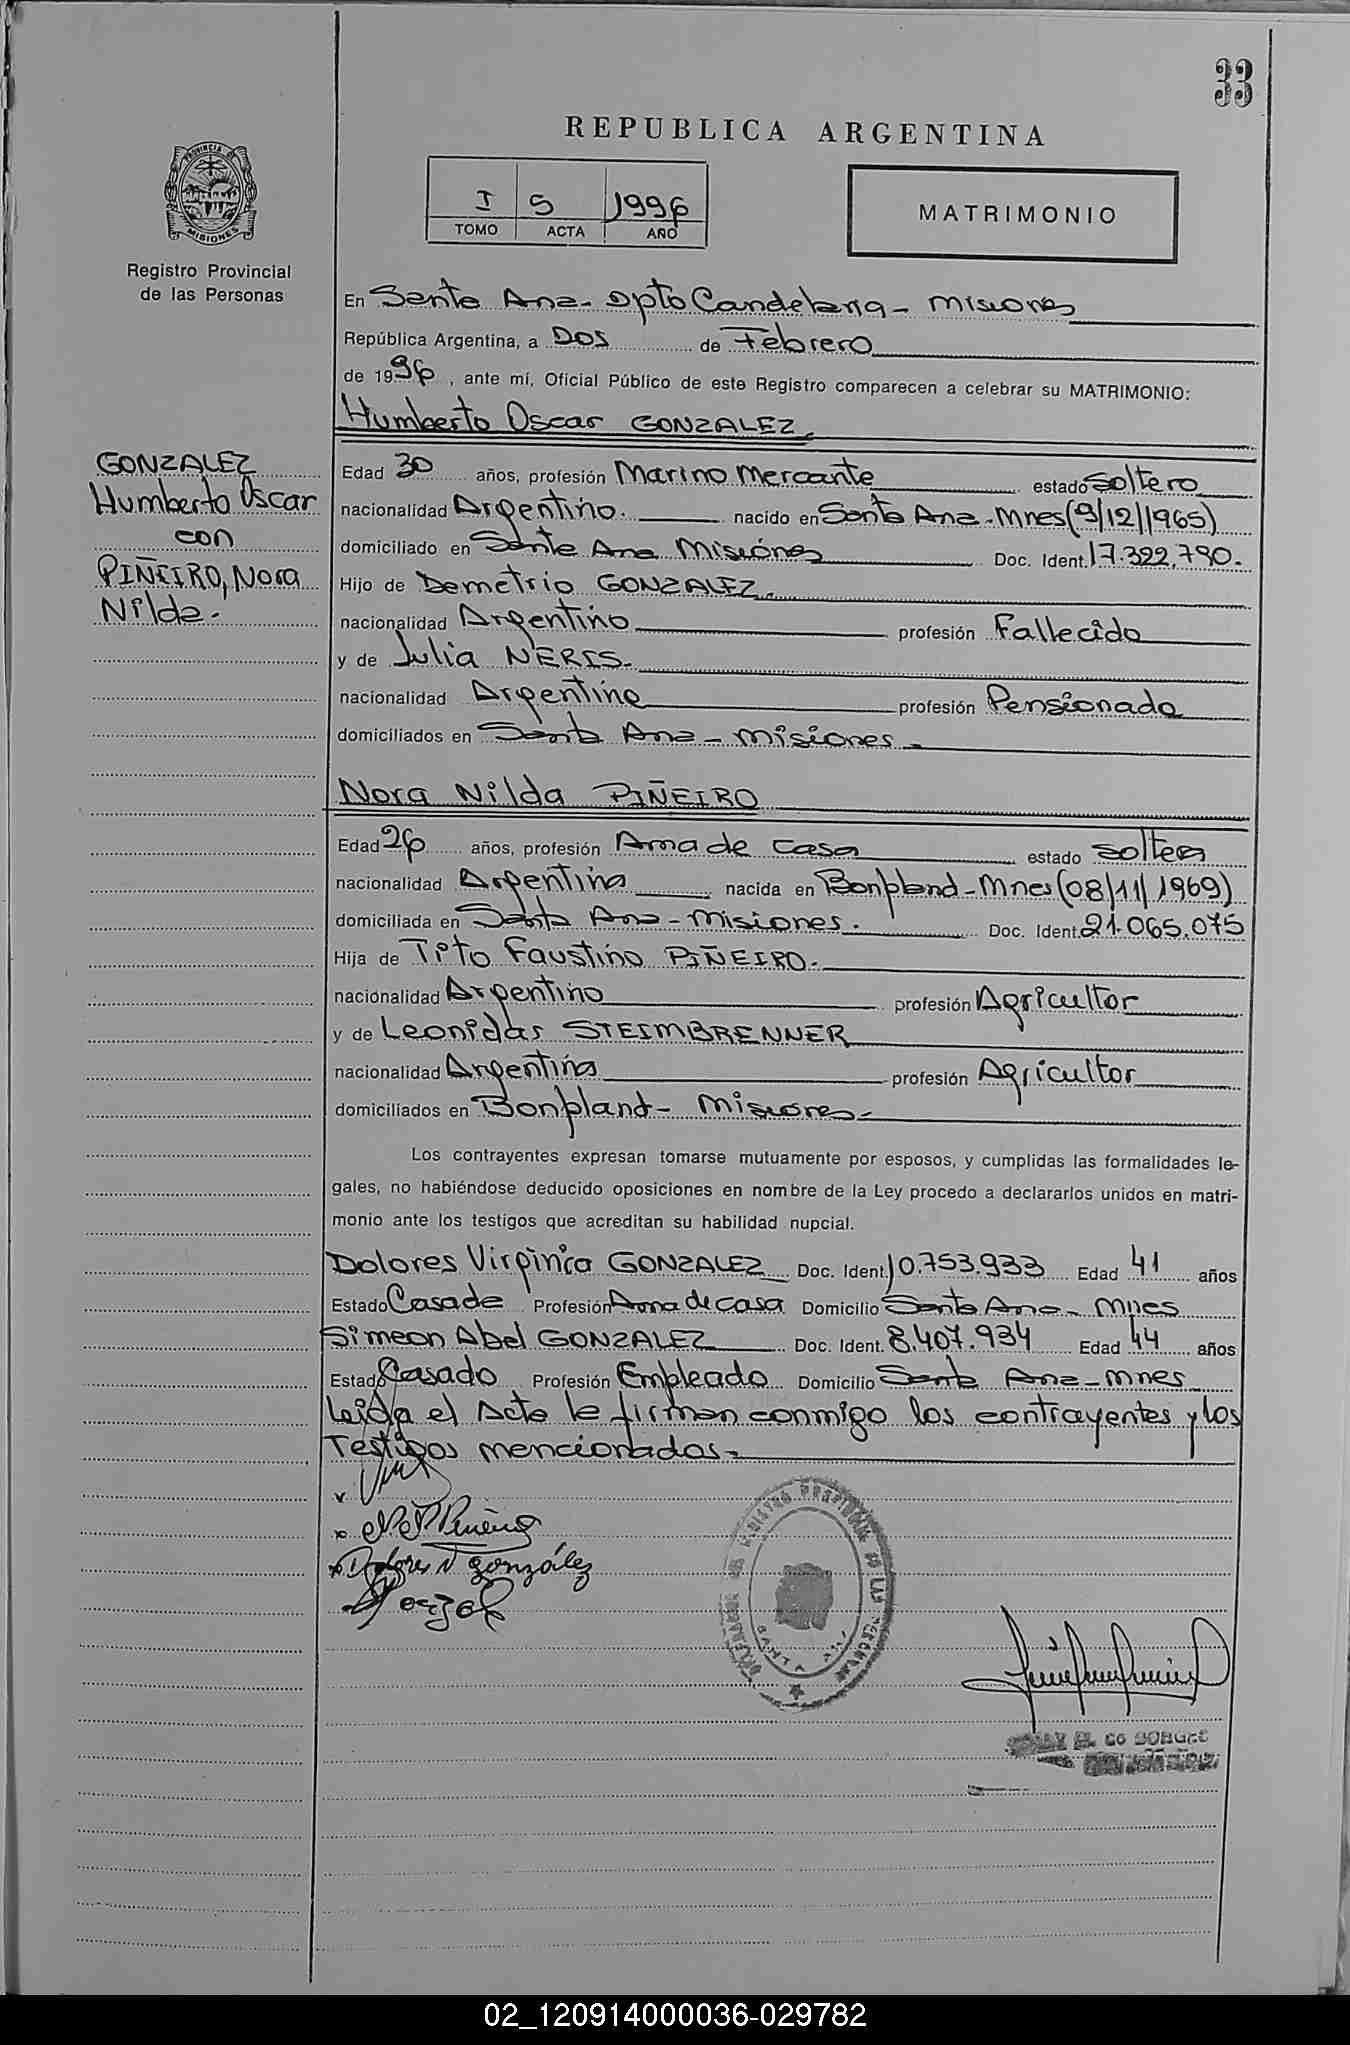 33
REPUBLICA ARGENTINA
PROVINCIA DE
MISIONES
Registro Provincial
de las Personas
I 5 1996
TOMO ACTA AÑO
MATRIMONIO
En Santa Ana - Dpto Candelaria - Misiones
República Argentina, a Dos de Febrero
de 1996, ante mí, Oficial Público de este Registro comparecen a celebrar su MATRIMONIO:
Humberto Oscar GONZALEZ.
GONZALEZ
Humberto Oscar
con
PIÑEIRO, Nora
Nilda.
Edad 30 años, profesión Marino Mercante estado Soltero
nacionalidad Argentino. nacido en Santa Ana - Mnes (9/12/1965)
domiciliado en Santa Ana Misiones Doc. Ident. 17.322.790.
Hijo de Demetrio GONZALEZ.
nacionalidad Argentino profesión Fallecido
y de Julia NERIS.
nacionalidad Argentina profesión Pensionada
domiciliados en Santa Ana - Misiones.
Nora Nilda PIÑEIRO
Edad 26 años, profesión Ama de casa estado Soltera
nacionalidad Argentina nacida en Bonpland - Mnes (08/11/1969)
domiciliada en Santa Ana - Misiones. Doc. Ident. 21.065.075
Hija de Tito Faustino PIÑEIRO.
nacionalidad Argentino profesión Agricultor
y de Leonidas STEIMBRENNER
nacionalidad Argentina profesión Agricultor
domiciliados en Bonpland - Misiones -
Los contrayentes expresan tomarse mutuamente por esposos, y cumplidas las formalidades le-
gales, no habiéndose deducido oposiciones en nombre de la Ley procedo a declararlos unidos en matri-
monio ante los testigos que acreditan su habilidad nupcial.
Dolores Virginia GONZALEZ Doc. Ident. 10.753.933 Edad 41 años
Estado Casada Profesión Ama de casa Domicilio Santa Ana - Mnes
Simeon Abel GONZALEZ Doc. Ident. 8.407.934 Edad 44 años
Estado Casado Profesión Empleado Domicilio Santa Ana - Mnes
Leida el Acta le firman conmigo los contrayentes y los
Testigos mencionados -
Dolores V González
REGISTRO PROVINCIAL DE LAS PERSONAS
SANTA ANA
DE BORGES
02_120914000036-029782